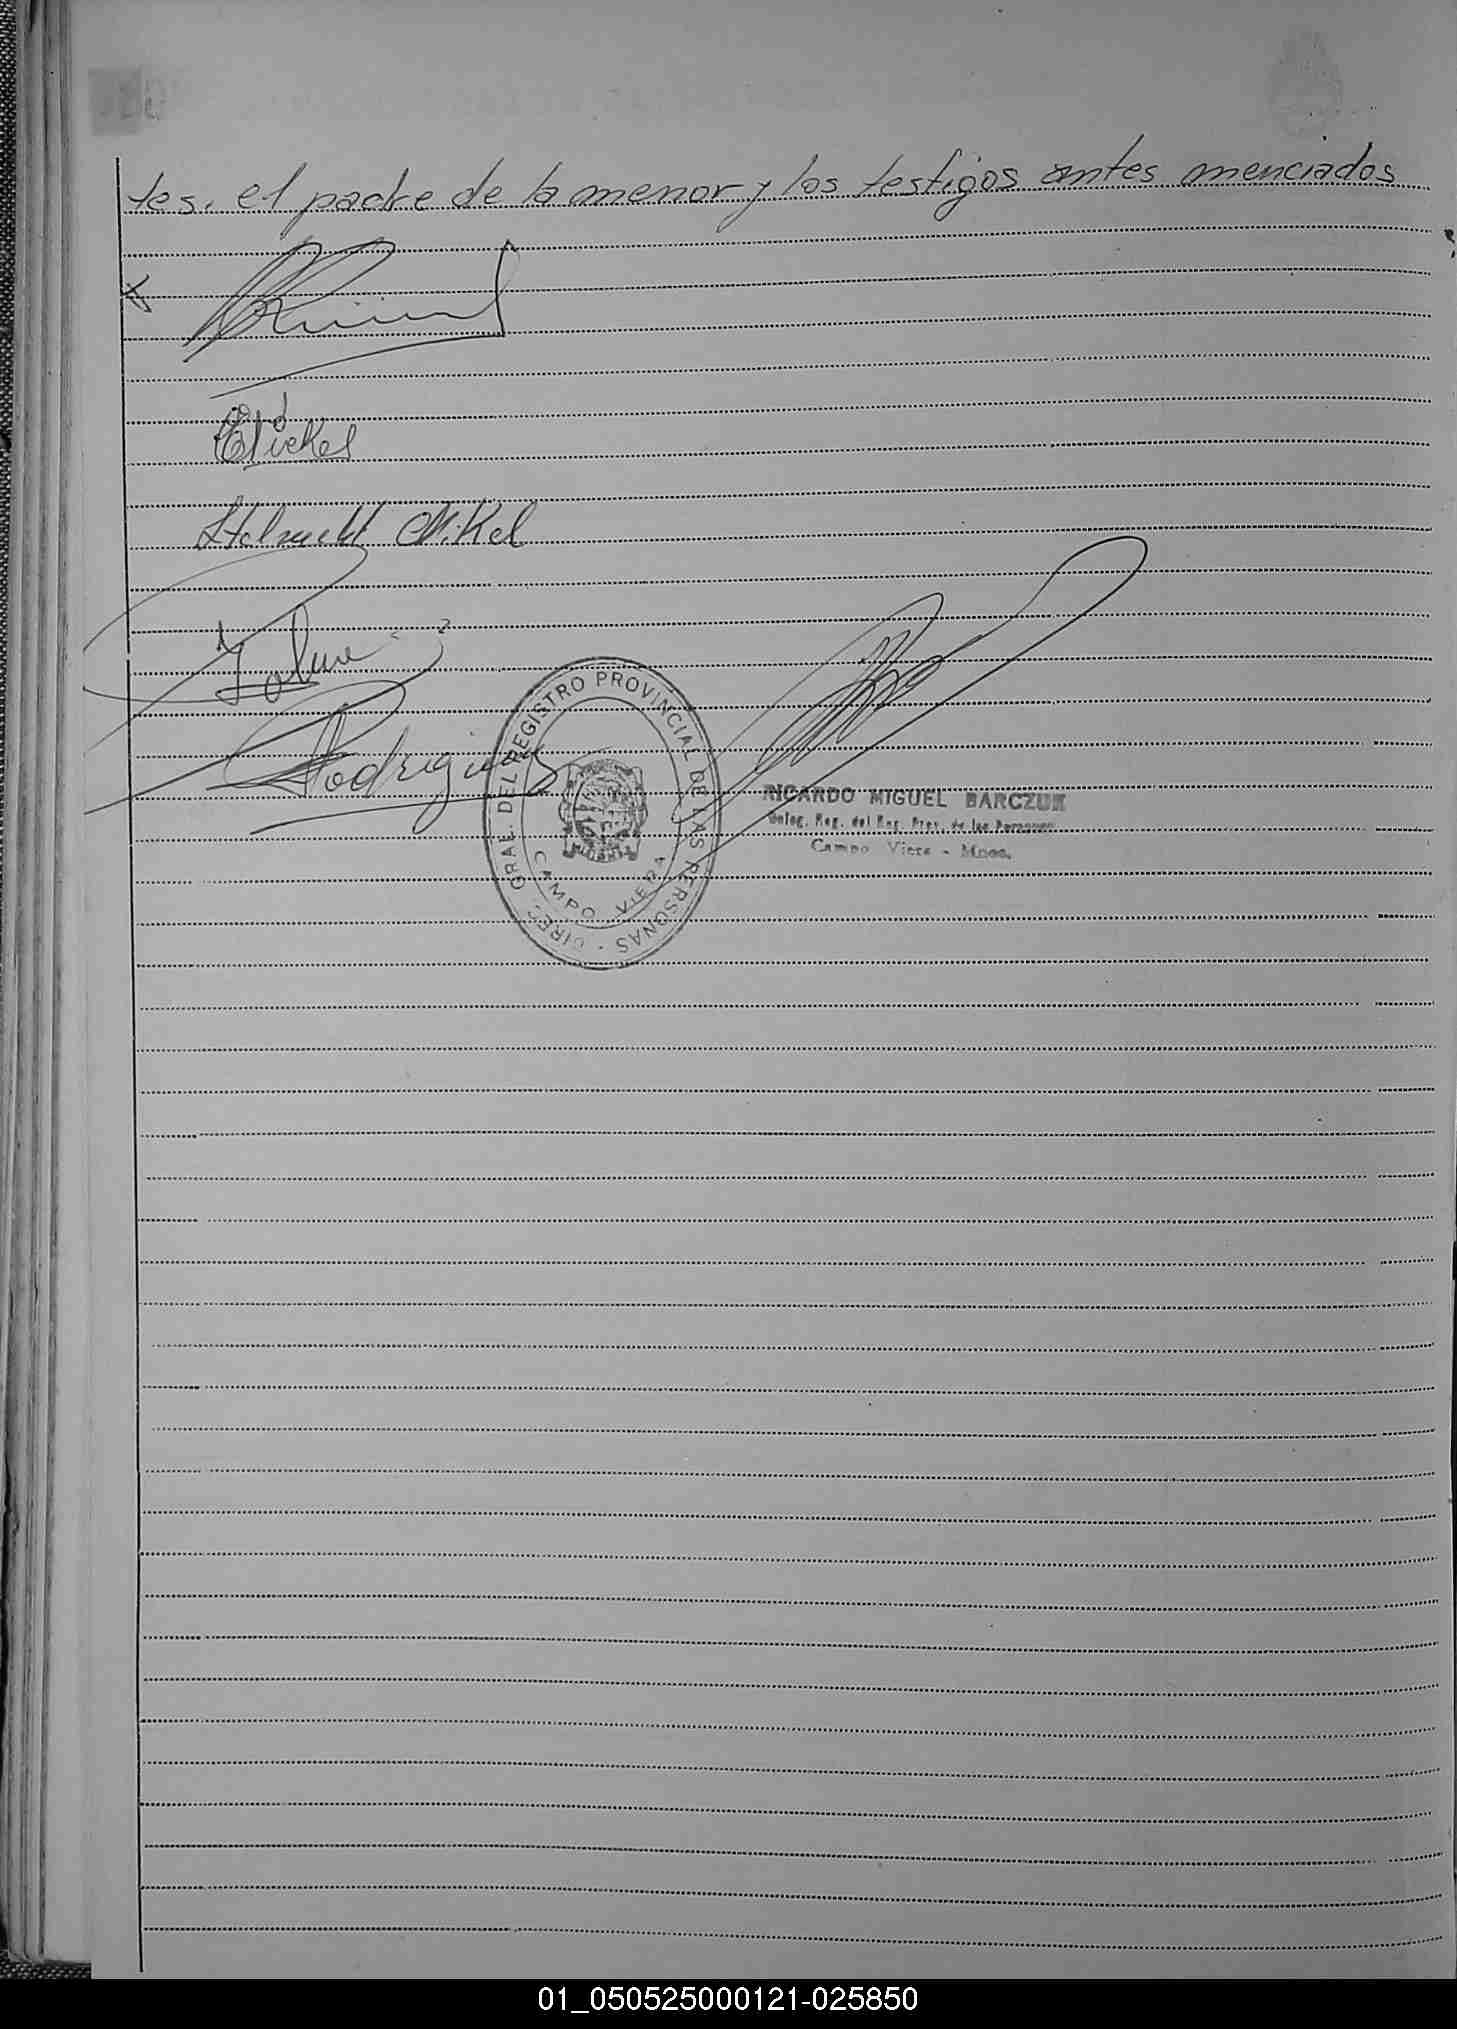 tes. el padre de la menor y los testigos antes menciados
Nikel
Rodriguez
DIREC. GRAL. DEL REGISTRO PROVINCIAL DE LAS PERSONAS -
CAMPO VIERA
RICARDO MIGUEL BARCZUK
Deleg. Reg. del Reg. Prov. de las Personas
Campo Viera - Mnes.
01_050525000121-025850